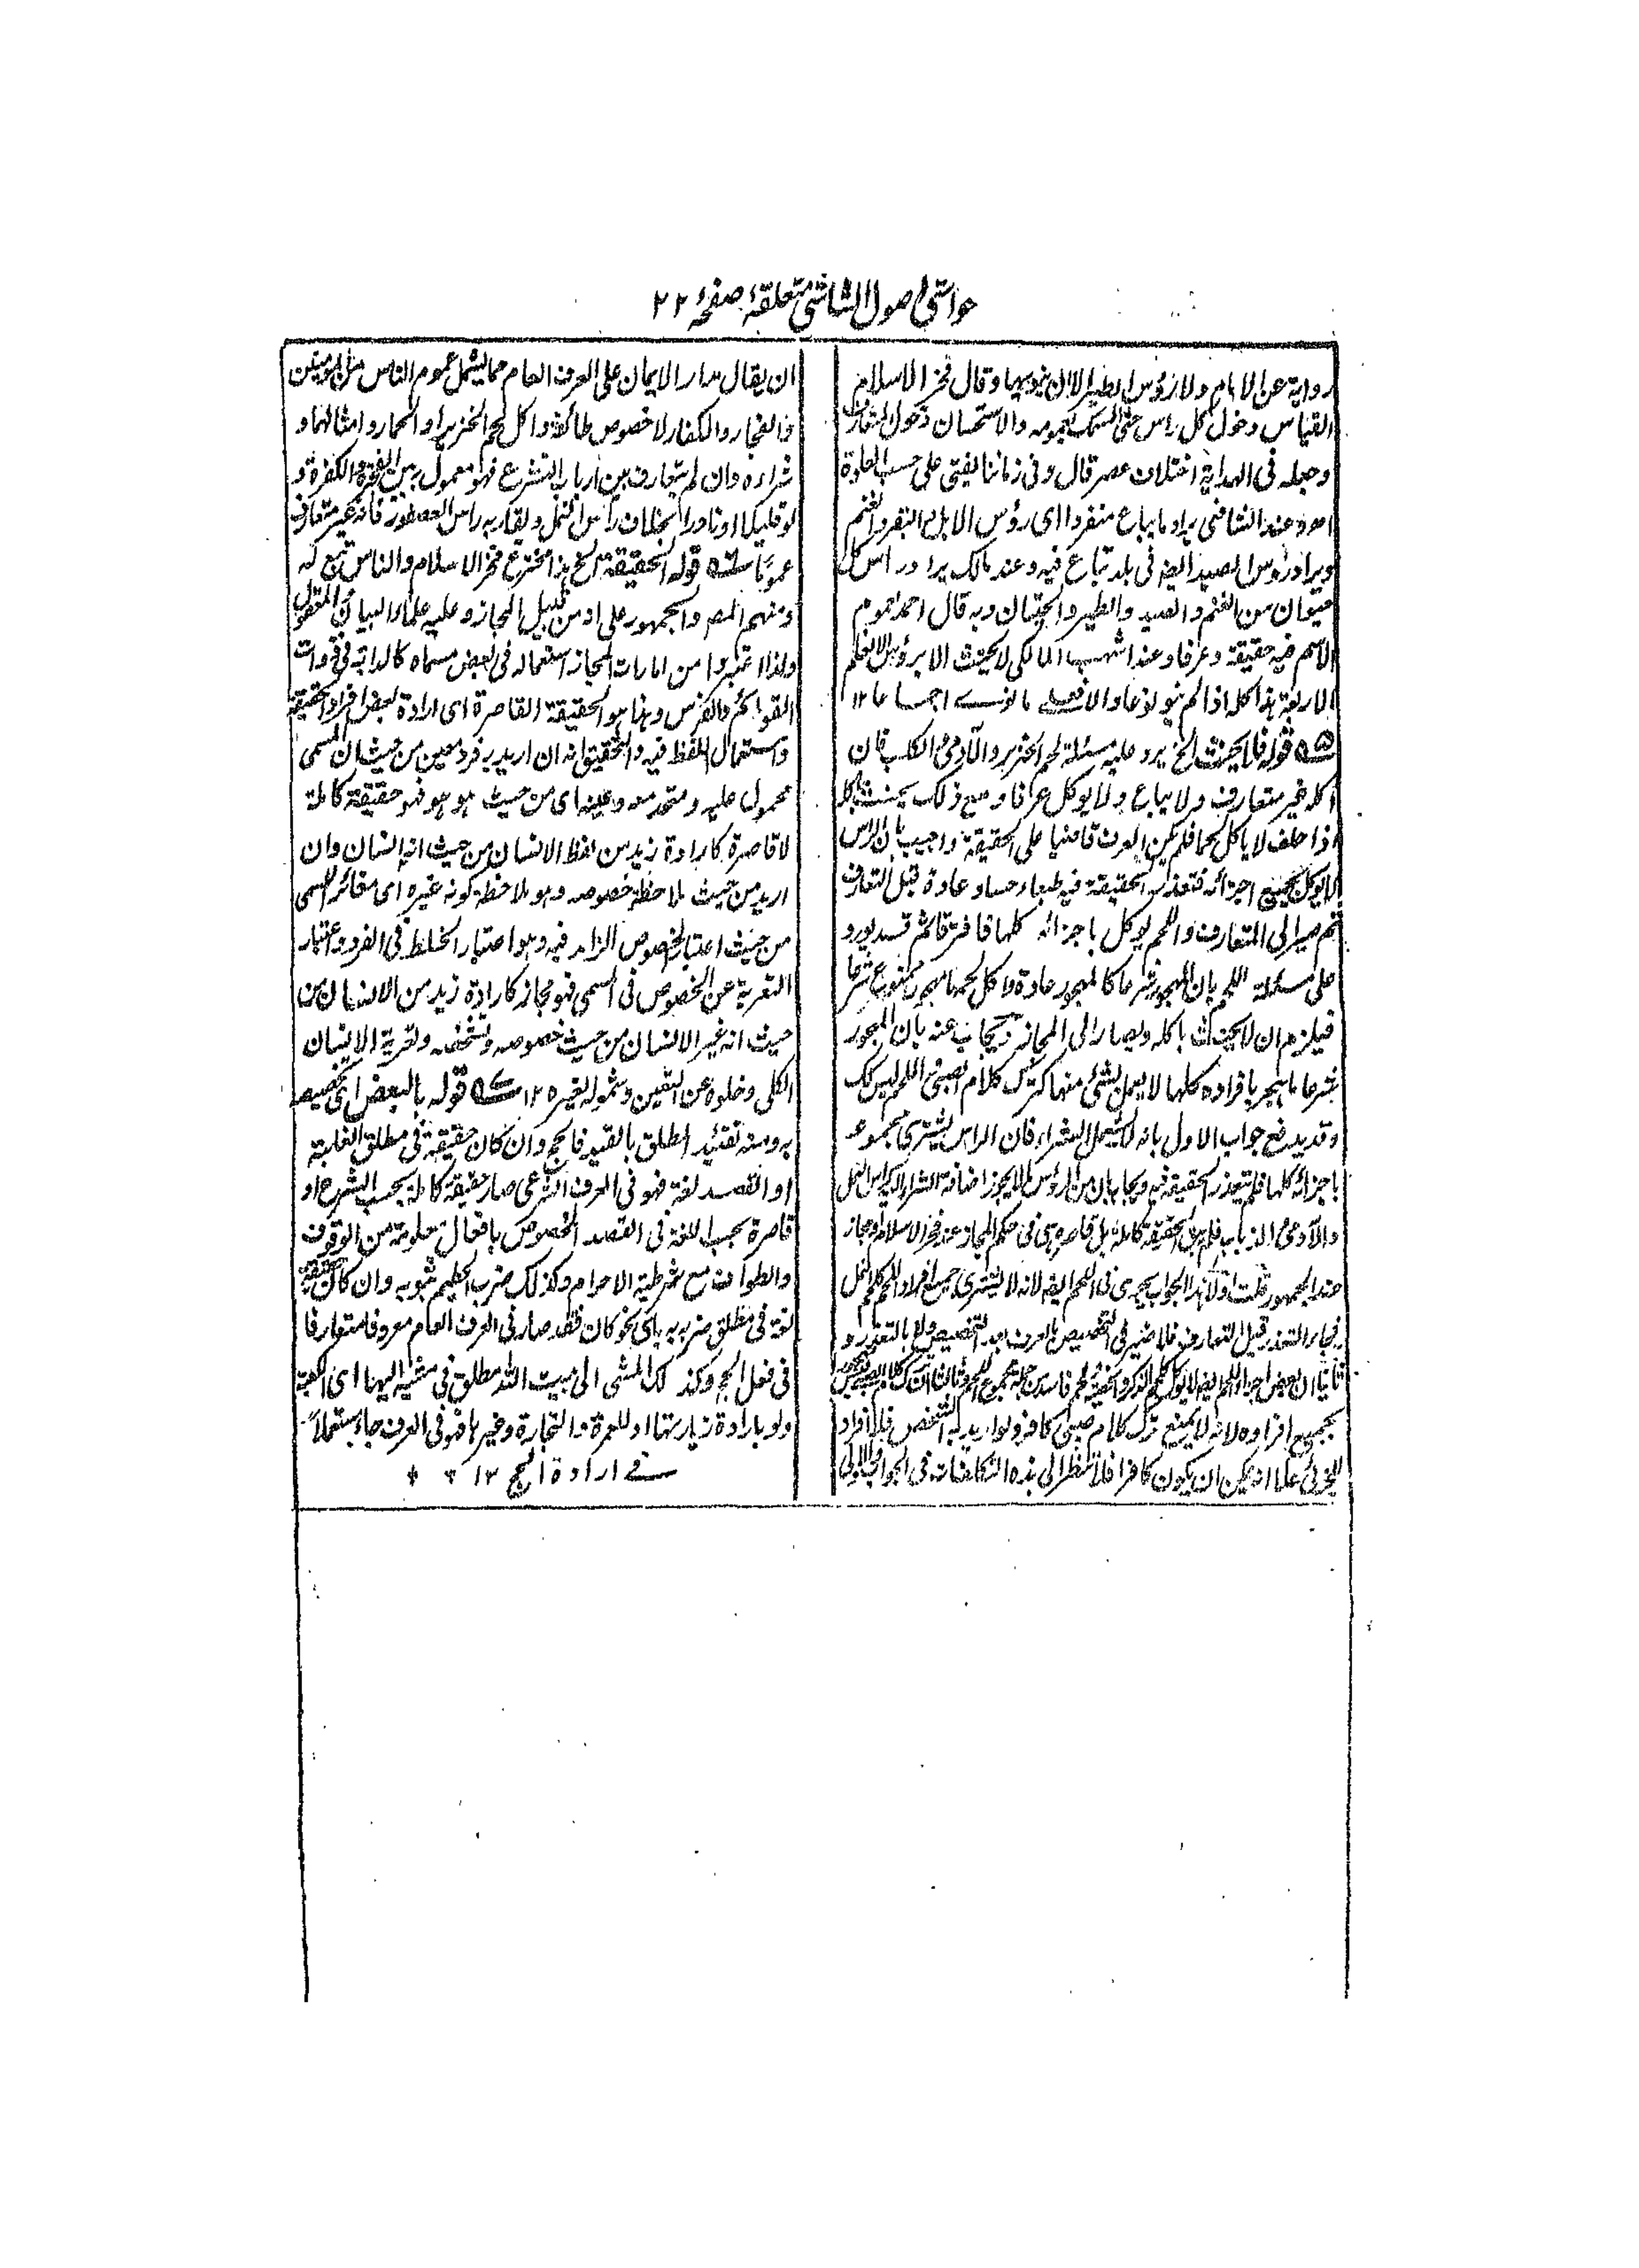 حواشی اصول الشاشی متعلقۂ صفحۂ ۲۲
روایة عن الامام ولا رؤس الطیر الا ان ینویہا وقال فخر الاسلام
القیاس دخول کل راس حتی السمک لعمومہ والاستحسان دخول المتعارف
وجعلہ فی الہدایة اختلاف عصر قال وفی زماننا یفتی علی حسب العادة
وعند الشافعی یراد ما یباع منفردا ای رؤس الابل والبقر والغنم
ویراد رؤس الصید ایضہ فی بلد تباع فیہ وعند مالک یراد راس کل
حیوان من الغنم والصید والطیر والحیتان وبہ قال احمد لعموم
الاسم فیہ حقیقة وعرفا وعند اشہب المالکی لا یحنث الا برؤس الانعام
الاربعة ہذا کلہ اذا لم ینو نوعا والا فعلی ما نوی اجماعا ۱۲
۵ قولہ فلا یحنث الخ یرد علیہ مسئلة لحم الخنزیر والآدمی والکلب فان
اکلہ غیر متعارف ولا یباع ولا یوکل عرفا ومع ذلک یحنث باکلہ
اذا حلف لا یاکل لحما فلم یکن العرف قاضیا علی الحقیقة واجیب بان الراس
لا یوکل بجمیع اجزائہ فتعذر الحقیقة فیہ طبعا وحسا وعادة قبل التعارف
ثم صیر الی المتعارف واللحم یوکل باجزائہ کلہا فافترقا ثم قد یورد
علی مسئلة اللحم بان المہجور شرعا کالمہجور عادة واکل لحمہا مہجور ممنوع شرعا
فیلزم ان لا یحنث باکلہ ویصار الی المجاز ویجاب عنہ بان المہجور
شرعا ما یہجر بافرادہ کلہا لا یعمل بشئ منہا کترک کلام الصبی واللحم لیس کک
وقد یدفع جواب الاول بانہ لا یشمل الشراء فان الراس یشتری بمجموعہ
باجزائہ کلہا فلم یتعذر الحقیقة فیہ ویجاب بان من الرؤس ما لا یجوز اضافة الشراء الیہ کراس النمل
والآدمی والذباب فلم یبق الحقیقة کاملة بل قاصرة وہی فی حکم المجاز عند فخر الاسلام ومجاز
عند الجمہور قلت اولا ہذا الجواب یجری فی اللحم ایضہ لانہ لا یشتری جمیع افراد اللحم کلحم النمل
فجاء التعذر قبل التعارف فلا ضیر فی التخصیص بالعرف بعد التخصیص اولا بالتعذر و
ثانیا ان بعض اجزاء اللحم ایضہ لا یوکل
بجمیع افرادہ لانہ لا یمنع ترک کلام صبی کافر ولو ارید بہ الشخص فلا افراد
للجزئی علی انہ یمکن ان یکون کافرا فلا تنظر الی ہذہ التکلفات فی الجواب والاولی
ان یقال مدار الایمان علی العرف العام مما یشمل عموم الناس من المومنین
والفجار والکفار لا خصوص طائفة واکل لحم الخنزیر او الحمار وامثالہما و
شراءہ وان لم یتعارف بین ارباب التشرع فہو معمول بین الفجرة والکفرة و
لو قلیلا او نادرا بخلاف راس النمل ویقاربہ راس العصفور فانہ غیر متعارف
عموما ۶ قولہ الحقیقة الخ ہذا مخترع فخر الاسلام والناس تبع لہ
ومنہم المصـ والجمہور علی انہ من قبیل المجاز وعلیہ علماء البیان من المنقول
ولذا اعتبروا من امارات المجاز استعمالہ فی بعض مسماہ کالدابة فی ذوات
القوائم والفرس وہذا ہو الحقیقة القاصرة ای ارادة بعض افراد الحقیقة
واستعمال اللفظ فیہ والتحقیق انہ ان ارید بہ فرد معین من حیث ان المسمی
محمول علیہ ومتحد معہ وعینہ ای من حیث ہو ہو فہو حقیقة کاملة
لا قاصرة کارادة زید من لفظ الانسان من حیث انہ انسان وان
ارید من حیث ملاحظة خصوصہ وہو ملاحظة کونہ غیرہ ای مغائر المسمی
من حیث اعتبار الخصوص الزائد فیہ وہو اعتبار الخلط فی الفرد واعتبار
التعریة عن الخصوص فی المسمی فہو مجاز کارادة زید من الانسان من
حیث انہ غیر الانسان من حیث خصوصہ وتشخصہ وتعریة الانسان
الکلی وخلوہ عن التعین وشمولہ لغیرہ ۱۲ ۷ قولہ بالبعض ای تخصیص
بہ ومنہ تقئید المطلق بالقید فالحج وان کان حقیقة فی مطلق الغلبة
او القصد لغة فہو فی العرف الشرعی صار حقیقة کاملة بحسب الشرع او
قاصرة بحسب اللغة فی القصد المخصوص بافعال معلومة من الوقوف
والطواف مع شرطیة الاحرام وکذلک ضرب الحطیم بثوبہ وان کان حقیقة
لغة فی مطلق ضربہ بہ بای نحو کان فقد صار فی العرف العام معروفا متعارفا
فی فعل الحج وکذلک المشی الی بیت اللہ مطلق فی مشیہ الیہا ای الکعبة
ولو بارادة زیارتہا او للعمرة والتجارة وغیرہا فہو فی العرف جاء مستعملاً
فی ارادة الحج ۱۲